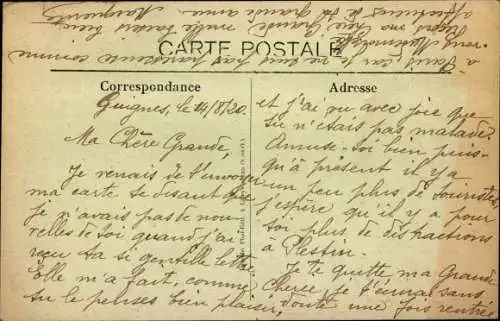 CARTE POSTALE
Correspondance
Adresse
Guignes, le 14/8/20.
Ma Chère Grande,
Je venais de t'envoyer
ma carte se disant que
je n'avais pas de nou-
velles de toi quand j'ai
reçu ta si gentille lettre
Elle m'a fait, comme
tu le penses bien plaisir,
et j'ai vu avec joie que
tu n'étais pas malade.
Amuse-toi bien puis-
qu'à présent il y a
un peu plus de touristes,
j'espère qu'il y a pour
toi plus de distractions
à Plestin.
Je te quitte ma Grande
Chérie, je t'écrirai sans
doute une fois rentrée
à Paris car je ne suis pas paresseuse comme
Reçois ma chère Grande mille baisers bien
affectueux de ta grande amie
Marguerite